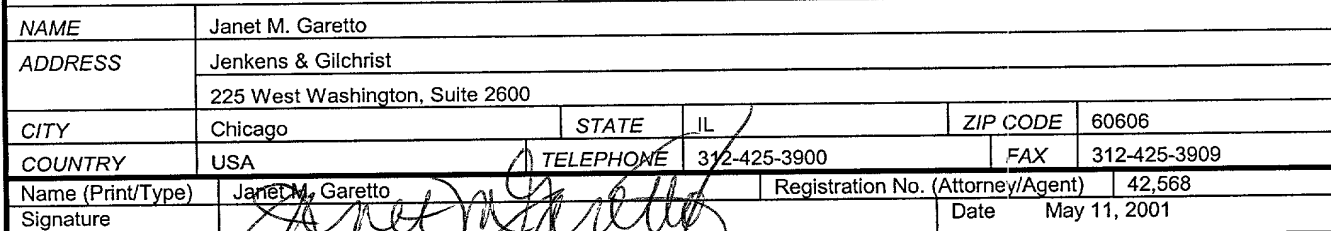 NAME Janet M. Garetto
ADDRESS Jenkens & Gilchrist
225 West Washington, Suite 2600
CITY Chicago STATE IL ZIP CODE 60606
COUNTRY USA TELEPHONE 312-425-3900 FAX 312-425-3909
Name (Print/Type) Janet M. Garetto Registration No. (Attorney/Agent) 42,568
Signature Janet M Garetto Date May 11, 2001